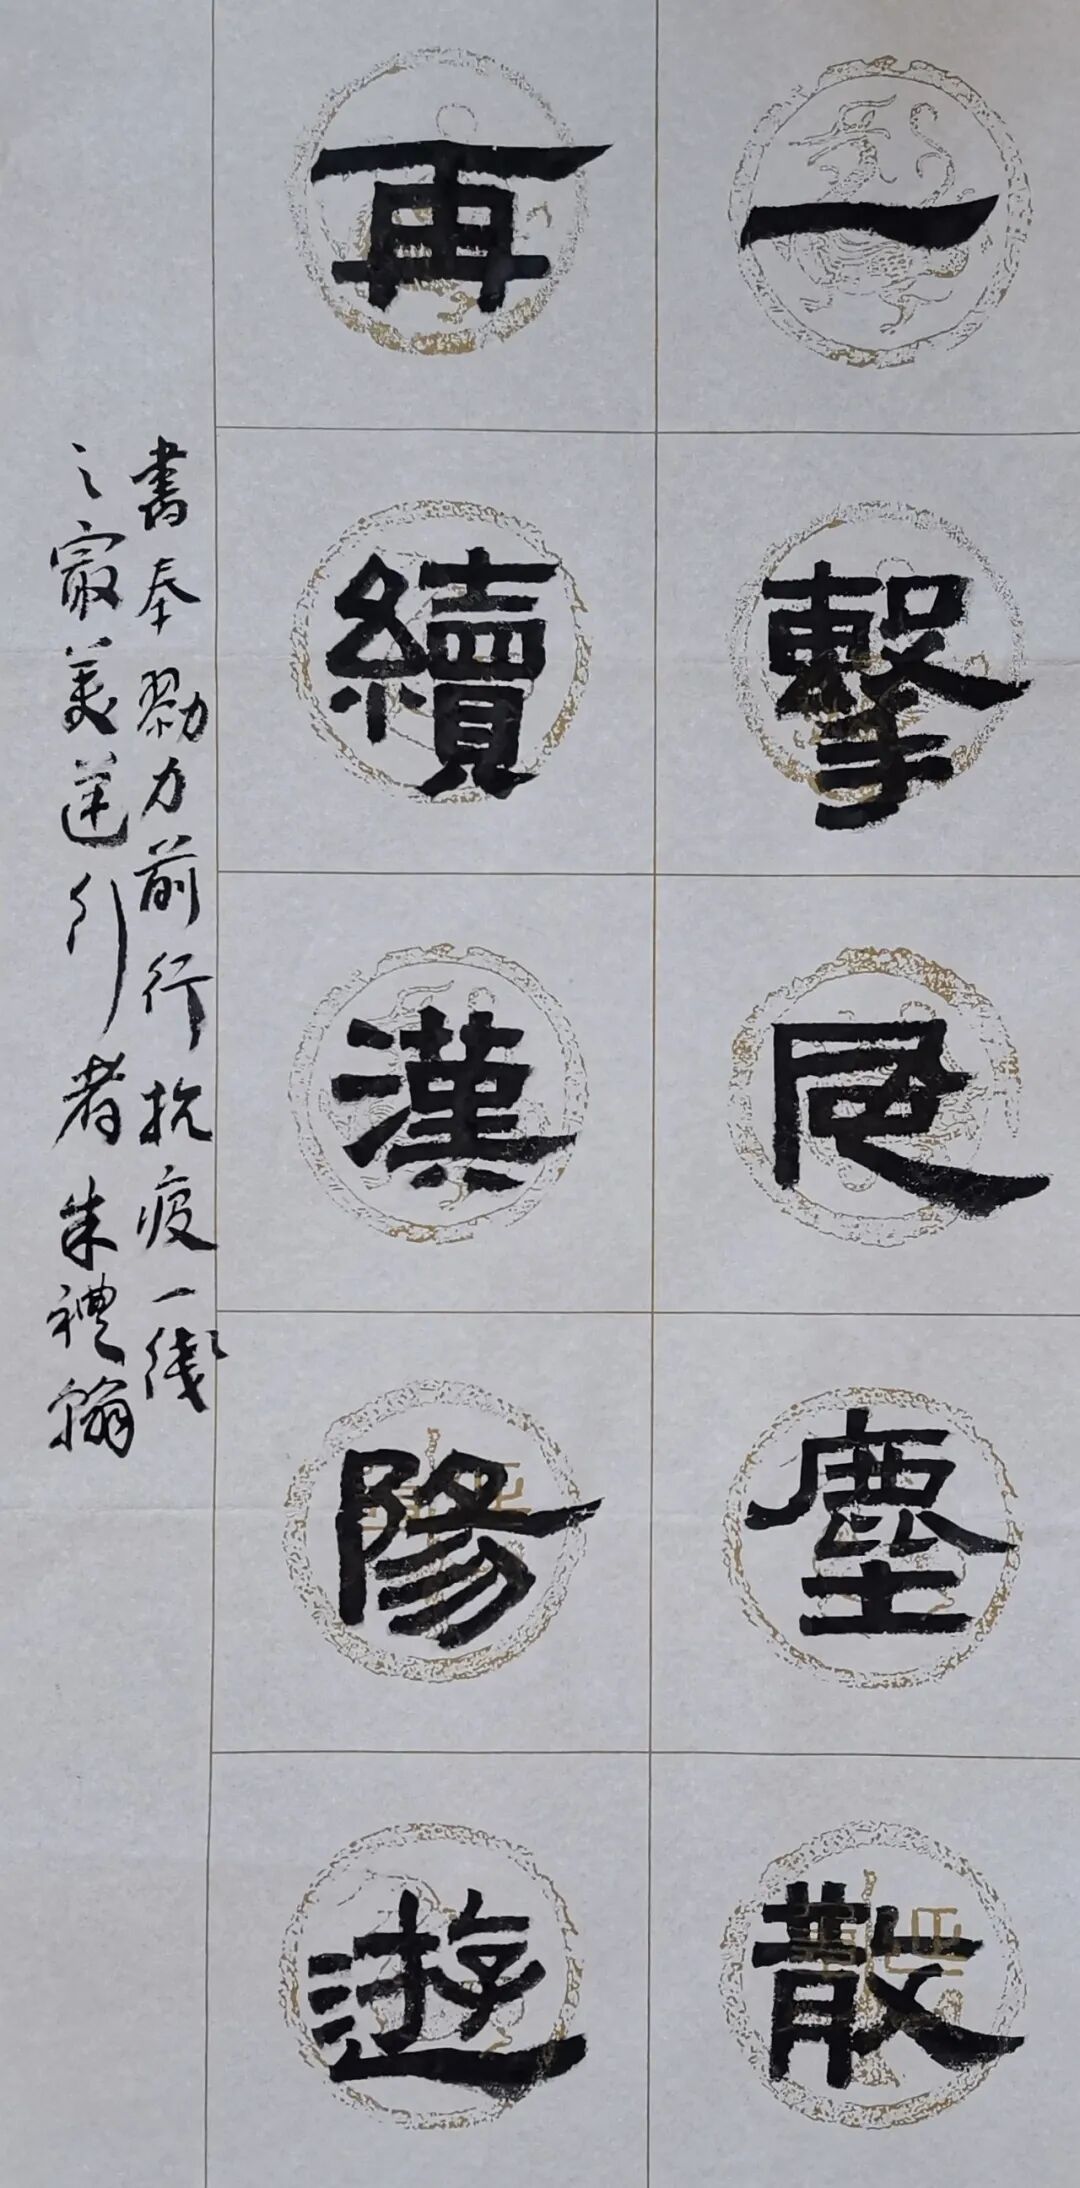 一擊塵散
再續漢陽遊
書奉勠力前行抗疫一綫
之最美逆行者朱禮翰